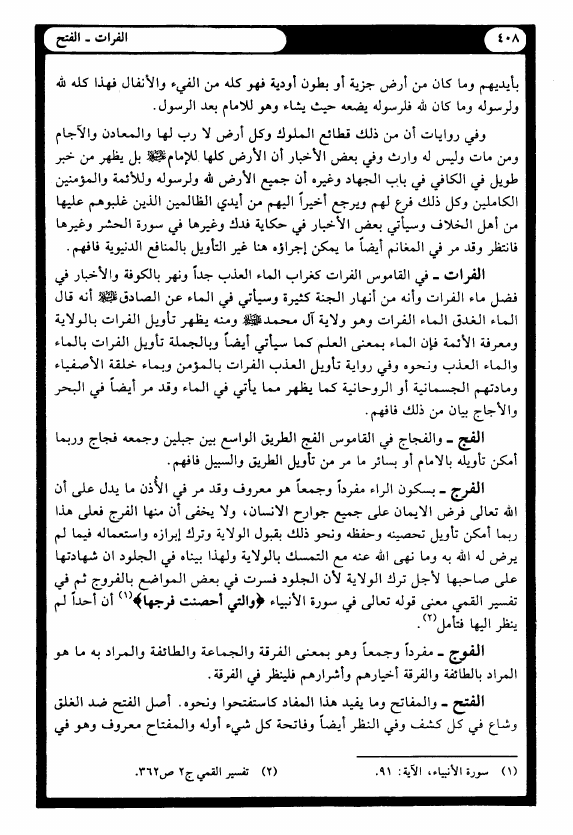 ٤٠٨
الفرات ـ الفتح
بأيديهم وما كان من أرض جزية أو بطون أودية فهو كله من الفيء والأنفال فهذا كله لله
ولرسوله وما كان لله فلرسوله يضعه حيث يشاء وهو للامام بعد الرسول.
وفي روايات أن من ذلك قطائع الملوك وكل أرض لا رب لها والمعادن والآجام
ومن مات وليس له وارث وفي بعض الأخبار أن الأرض كلها للإمام ﷺ بل يظهر من خبر
طويل في الكافي في باب الجهاد وغيره أن جميع الأرض لله ولرسوله وللأئمة والمؤمنين
الكاملين وكل ذلك فرع لهم ويرجع أخيراً اليهم من أيدي الظالمين الذين غلبوهم عليها
من أهل الخلاف وسيأتي بعض الأخبار في حكاية فدك وغيرها في سورة الحشر وغيرها
فانتظر وقد مر في المغانم أيضاً ما يمكن إجراؤه هنا غير التأويل بالمنافع الدنيوية فافهم.
الفرات ـ في القاموس الفرات كغراب الماء العذب جداً ونهر بالكوفة والأخبار في
فضل ماء الفرات وأنه من أنهار الجنة كثيرة وسيأتي في الماء عن الصادق ﷺ أنه قال
الماء الغدق الماء الفرات وهو ولاية آل محمد ﷺ ومنه يظهر تأويل الفرات بالولاية
ومعرفة الأئمة فإن الماء بمعنى العلم كما سيأتي أيضاً وبالجملة تأويل الفرات بالماء
والماء العذب ونحوه وفي رواية تأويل العذب الفرات بالمؤمن وبماء خلقة الأصفياء
ومادتهم الجسمانية أو الروحانية كما يظهر مما يأتي في الماء وقد مر أيضاً في البحر
والأجاج بيان من ذلك فافهم.
الفج ـ والفجاج في القاموس الفج الطريق الواسع بين جبلين وجمعه فجاج وربما
أمكن تأويله بالامام أو بسائر ما مر من تأويل الطريق والسبيل فافهم.
الفرج ـ بسكون الراء مفرداً وجمعاً هو معروف وقد مر في الأُذن ما يدل على أن
الله تعالى فرض الايمان على جميع جوارح الانسان، ولا يخفى أن منها الفرج فعلى هذا
ربما أمكن تأويل تحصينه وحفظه ونحو ذلك بقبول الولاية وترك إبرازه واستعماله فيما لم
يرض له الله به وما نهى الله عنه مع التمسك بالولاية ولهذا بيناه في الجلود ان شهادتها
على صاحبها لأجل ترك الولاية لأن الجلود فسرت في بعض المواضع بالفروج ثم في
تفسير القمي معنى قوله تعالى في سورة الأنبياء ﴿والتي أحصنت فرجها﴾(١) أن أحداً لم
ينظر اليها فتأمل(٢).
الفوج ـ مفرداً وجمعاً وهو بمعنى الفرقة والجماعة والطائفة والمراد به ما هو
المراد بالطائفة والفرقة أخيارهم وأشرارهم فلينظر في الفرقة.
الفتح ـ والمفاتح وما يفيد هذا المفاد كاستفتحوا ونحوه. أصل الفتح ضد الغلق
وشاع في كل كشف وفي النظر أيضاً وفاتحة كل شيء أوله والمفتاح معروف وهو في
(١) سورة الأنبياء، الآية: ٩١.
(٢) تفسير القمي ج٢ ص٣٦٢.